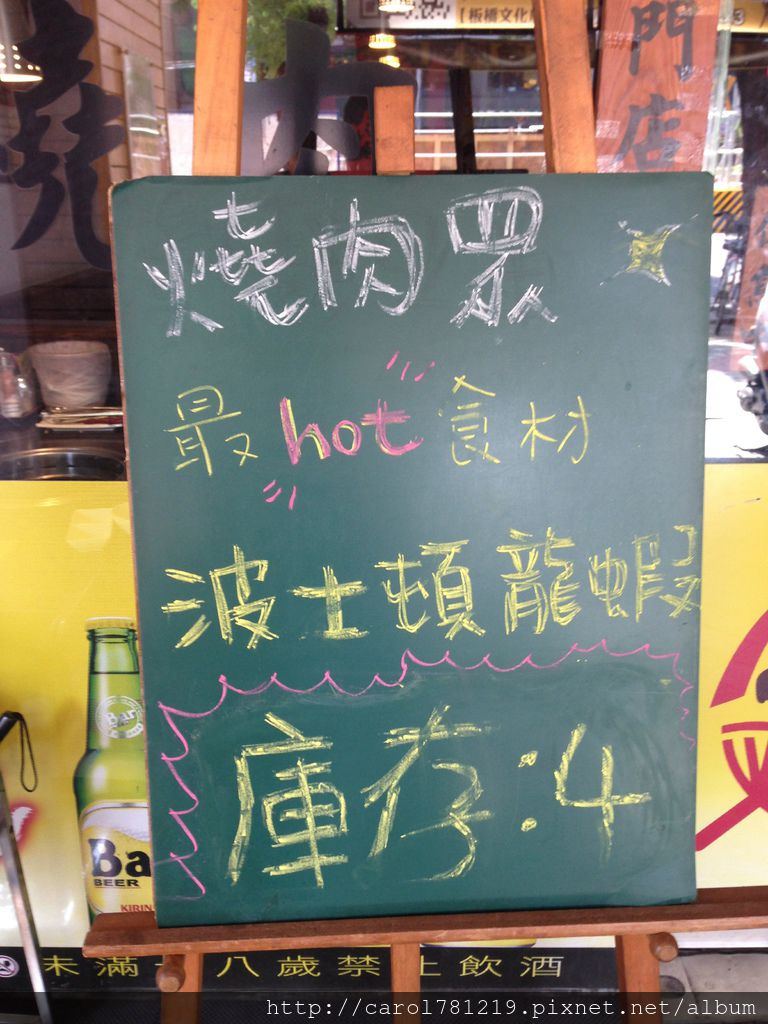 【板橋文化
門店
燒肉
燒肉眾
最hot食材
波士頓龍蝦
庫存:4
Bar
Ba
BEER
KIRIN
未滿十八歲禁止飲酒
http://carol781219.pixnet.net/album